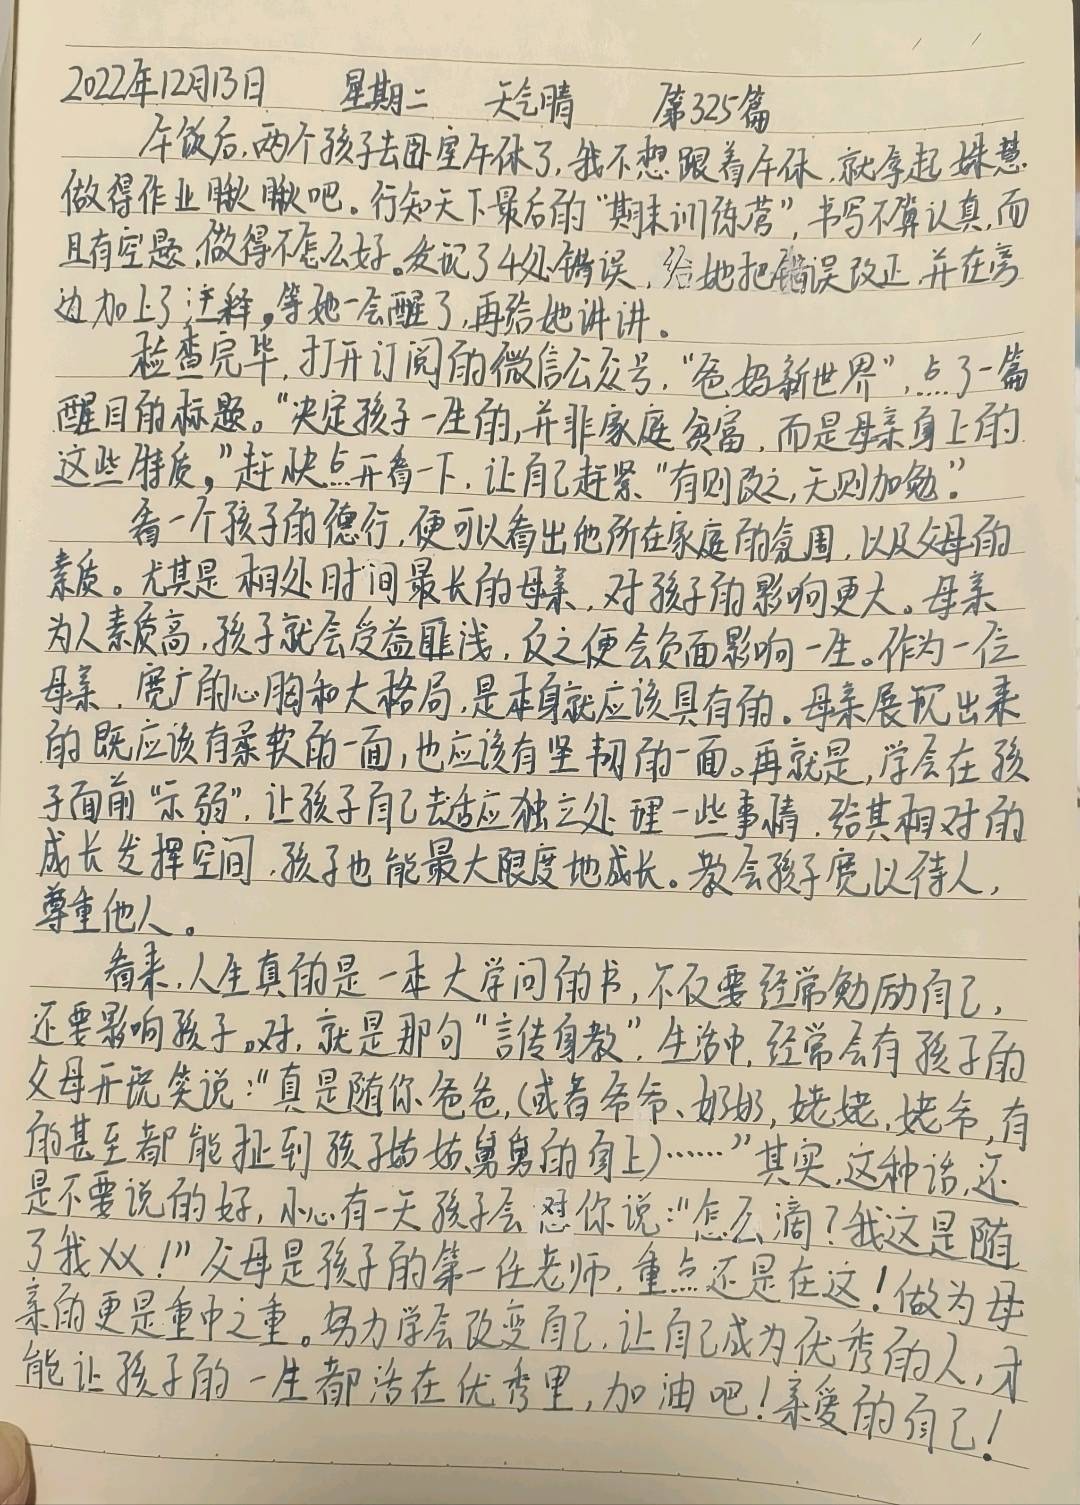 2022年12月13日 星期二 天气晴 第325篇
午饭后,两个孩子去卧室午休了,我不想跟着午休,就拿起姝慧
做得作业瞅瞅吧。行知天下最后的“期末训练营”,书写不算认真,而
且有空题,做得不怎么好。发现了4处错误,给她把错误改正,并在旁
边加上了注释。等她一会醒了,再给她讲讲。
检查完毕,打开订阅的微信公众号,“爸妈新世界”,点了一篇
醒目的标题。“决定孩子一生的,并非家庭贫富,而是母亲身上的
这些特质。”赶快点开看一下,让自己赶紧“有则改之,无则加勉”。
看一个孩子的德行,便可以看出他所在家庭的氛围,以及父母的
素质。尤其是相处时间最长的母亲,对孩子的影响更大。母亲
为人素质高,孩子就会受益匪浅,反之便会负面影响一生。作为一位
母亲,宽广的心胸和大格局,是本身就应该具有的。母亲展现出来
的既应该有柔软的一面,也应该有坚韧的一面。再就是,学会在孩
子面前“示弱”,让孩子自己去适应独立处理一些事情,给其相对的
成长发挥空间,孩子也能最大限度地成长。教会孩子宽以待人,
尊重他人。
看来,人生真的是一本大学问的书,不仅要经常勉励自己,
还要影响孩子。对,就是那句“言传身教”,生活中,经常会有孩子的
父母开玩笑说:“真是随你爸爸,(或者爷爷、奶奶,姥姥,姥爷,有
的甚至都能扯到孩子姑姑、舅舅的身上)……”其实,这种话,还
是不要说的好,小心有一天孩子会怼你说:“怎么滴?我这是随
了我XX!”父母是孩子的第一任老师,重点还是在这!做为母
亲的更是重中之重。努力学会改变自己,让自己成为优秀的人,才
能让孩子的一生都活在优秀里,加油吧!亲爱的自己!